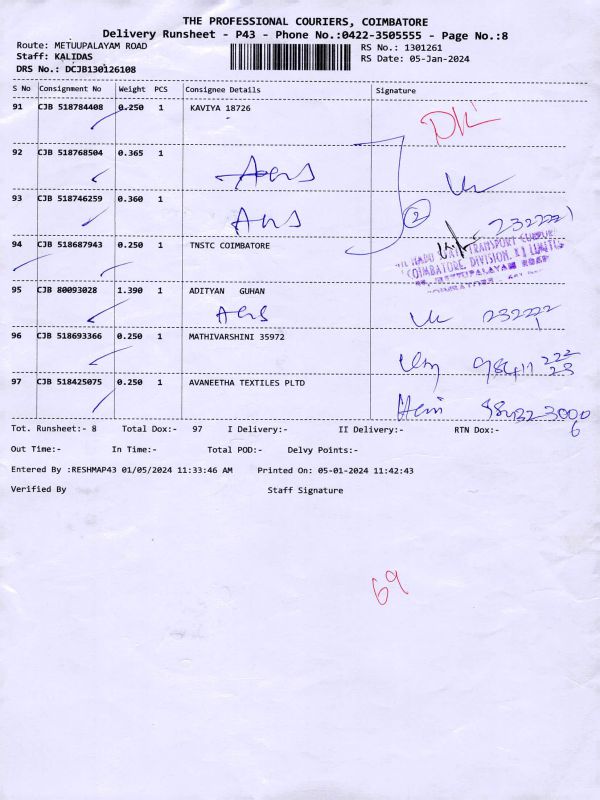 THE PROFESSIONAL COURIERS, COIMBATORE
Delivery Runsheet - P43 - Phone No.:0422-3505555 - Page No.:8
Route: METUUPALAYAM ROAD RS No.: 1301261
Staff: KALIDAS RS Date: 05-Jan-2024
DRS No.: DCJB130126108
S No Consignment No Weight PCS Consignee Details Signature
91 CJB 518784408 0.250 1 KAVIYA 18726
92 CJB 518768504 0.365 1
93 CJB 518746259 0.360 1
2 232222
94 CJB 518687943 0.250 1 TNSTC COIMBATORE
TRANSPORT
COIMBATORE DIVISION
METTUPALAYAM ROAD
95 CJB 80093028 1.390 1 ADITYAN GUHAN
232222
96 CJB 518693366 0.250 1 MATHIVARSHINI 35972
97 CJB 518425075 0.250 1 AVANEETHA TEXTILES PLTD
Tot. Runsheet:- 8 Total Dox:- 97 I Delivery:- II Delivery:- RTN Dox:-
Out Time:- In Time:- Total POD:- Delvy Points:-
Entered By :RESHMAP43 01/05/2024 11:33:46 AM Printed On: 05-01-2024 11:42:43
Verified By Staff Signature
69